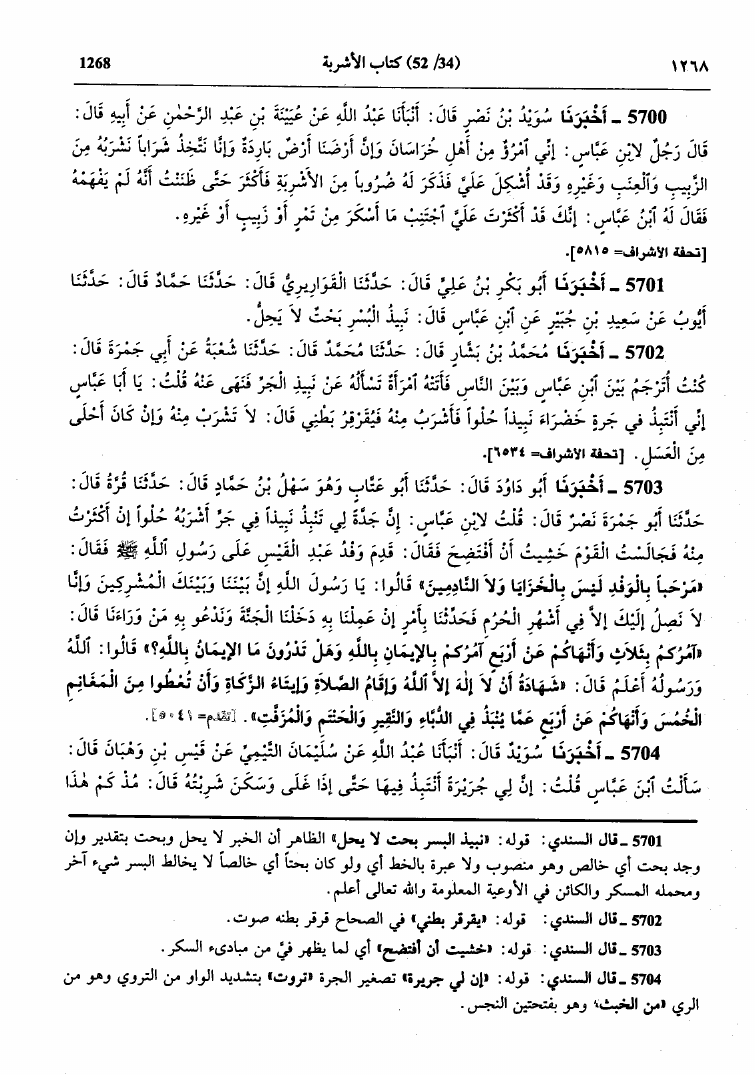 1268 (34/ 52) كتاب الأشربة ١٢٦٨
5700 ـ أَخْبَرَنَا سُوَيْدُ بْنُ نَصْرٍ قَالَ: أَنْبَأَنَا عَبْدُ اللَّهِ عَنْ عُيَيْنَةَ بْنِ عَبْدِ الرَّحْمٰنِ عَنْ أَبِيهِ قَالَ:
قَالَ رَجُلٌ لابْنِ عَبَّاسٍ: إنِّي آمْرُؤٌ مِنْ أَهْلِ خُرَاسَانَ وَإنَّ أَرْضَنَا أَرْضٌ بَارِدَةٌ وَإنَّا نَتَّخِذُ شَرَاباً نَشْرَبُهُ مِنَ
الزَّبِيبِ وَالْعِنَبِ وَغَيْرِهِ وَقَدْ أُشْكِلَ عَلَيَّ فَذَكَرَ لَهُ ضُرُوباً مِنَ الأَشْرِبَةِ فَأَكْثَرَ حَتَّى ظَنَنْتُ أَنَّهُ لَمْ يَفْهَمْهُ
فَقَالَ لَهُ ٱبْنُ عَبَّاسٍ: إنَّكَ قَدْ أَكْثَرْتَ عَلَيَّ ٱجْتَنِبْ مَا أَسْكَرَ مِنْ تَمْرٍ أَوْ زَبِيبٍ أَوْ غَيْرِهِ.
[تحفة الأشراف= ٥٨١٥].
5701 ـ أَخْبَرَنَا أَبُو بَكْرِ بْنُ عَلِيٍّ قَالَ: حَدَّثَنَا الْقَوَارِيرِيُّ قَالَ: حَدَّثَنَا حَمَّادٌ قَالَ: حَدَّثَنَا
أَيُّوبُ عَنْ سَعِيدِ بْنِ جُبَيْرٍ عَنِ ٱبْنِ عَبَّاسٍ قَالَ: نَبِيذُ الْبُسْرِ بَحْتٌ لاَ يَحِلُّ.
5702 ـ أَخْبَرَنَا مُحَمَّدُ بْنُ بَشَّارٍ قَالَ: حَدَّثَنَا مُحَمَّدٌ قَالَ: حَدَّثَنَا شُعْبَةُ عَنْ أَبِي جَمْرَةَ قَالَ:
كُنْتُ أُتَرْجِمُ بَيْنَ ٱبْنِ عَبَّاسٍ وَبَيْنَ النَّاسِ فَأَتَتْهُ ٱمْرَأَةٌ تَسْأَلُهُ عَنْ نَبِيذِ الْجَرِّ فَنَهَى عَنْهُ قُلْتُ: يَا أَبَا عَبَّاسٍ
إنِّي أَنْتَبِذُ في جَرةٍ خَضْرَاءَ نَبِيذاً حُلْواً فَأَشْرَبُ مِنْهُ فَيُقَرْقِرُ بَطْنِي قَالَ: لاَ تَشْرَبْ مِنْهُ وَإنْ كَانَ أَحْلَى
مِنَ الْعَسَلِ. [تحفة الأشراف= ٦٥٣٤].
5703 ـ أَخْبَرَنَا أَبُو دَاوُدَ قَالَ: حَدَّثَنَا أَبُو عَتَّابٍ وَهُوَ سَهْلُ بْنُ حَمَّادٍ قَالَ: حَدَّثَنَا قُرَّةُ قَالَ:
حَدَّثَنَا أَبُو جَمْرَةَ نَصْرٌ قَالَ: قُلْتُ لابْنِ عَبَّاسٍ: إنَّ جَدَّةً لِي تَنْبِذُ نَبِيذاً فِي جَرٍّ أَشْرَبُهُ حُلْواً إنْ أَكْثَرْتُ
مِنْهُ فَجَالَسْتُ الْقَوْمَ خَشِيتُ أَنْ أَفْتَضِحَ فَقَالَ: قَدِمَ وَفْدُ عَبْدِ الْقَيْسِ عَلَى رَسُولِ ٱللَّهِ ﷺ فَقَالَ:
«مَرْحَباً بِالْوَفْدِ لَيْسَ بِالْخَزَايَا وَلاَ النَّادِمِينَ» قَالُوا: يَا رَسُولَ اللَّهِ إنَّ بَيْنَنَا وَبَيْنَكَ الْمُشْرِكِينَ وَإنَّا
لاَ نَصِلُ إلَيْكَ إلاَّ فِي أَشْهُرِ الْحُرُمِ فَحَدِّثْنَا بِأَمْرٍ إنْ عَمِلْنَا بِهِ دَخَلْنَا الْجَنَّةَ وَنَدْعُو بِهِ مَنْ وَرَاءَنَا قَالَ:
«آمُرُكمْ بِثَلاَثٍ وَأَنْهَاكُمْ عَنْ أَرْبَعٍ آمُرُكمْ بِالإيمَانِ بِاللَّهِ وَهَلْ تَدْرُونَ مَا الإيمَانُ بِاللَّهِ؟» قَالُوا: ٱللَّهُ
وَرَسُولُهُ أَعْلَمُ قَالَ: «شَهَادَةُ أَنْ لاَ إلٰهَ إلاَّ ٱللَّهُ وَإقَامُ الصَّلاَةِ وَإيتَاءُ الزَّكَاةِ وَأَنْ تُعْطُوا مِنَ الْمَغَانِمِ
الْخُمُسَ وَأَنْهَاكُمْ عَنْ أَرْبَعٍ عَمَّا يُنْبَذُ فِي الدُّبَّاءِ وَالنَّقِيرِ وَالْحَنْتَمِ وَالْمُزَفَّتِ». [تقدم= ٥٠٤١].
5704 ـ أَخْبَرَنَا سُوَيْدٌ قَالَ: أَنْبَأَنَا عَبْدُ اللَّهِ عَنْ سُلَيْمَانَ التَّيْمِيِّ عَنْ قَيْسِ بْنِ وَهْبَانَ قَالَ:
سَأَلْتُ ٱبْنَ عَبَّاسٍ قُلْتُ: إنَّ لِي جُرَيْرَةً أَنْتَبِذُ فِيهَا حَتَّى إذَا غَلَى وَسَكَنَ شَرِبْتُهُ قَالَ: مُذْ كَمْ هٰذَا
5701 ـ قال السندي: قوله: «نبيذ البسر بحت لا يحل» الظاهر أن الخبر لا يحل وبحت بتقدير وإن
وجد بحت أي خالص وهو منصوب ولا عبرة بالخط أي ولو كان بحتاً أي خالصاً لا يخالط البسر شيء آخر
ومحمله المسكر والكائن في الأوعية المعلومة والله تعالى أعلم.
5702 ـ قال السندي: قوله: «يقرقر بطني» في الصحاح قرقر بطنه صوت.
5703 ـ قال السندي: قوله: «خشيت أن أفتضح» أي لما يظهر فيَّ من مبادىء السكر.
5704 ـ قال السندي: قوله: «إن لي جريرة» تصغير الجرة «تروت» بتشديد الواو من التروي وهو من
الري «من الخبث» وهو بفتحتين النجس.